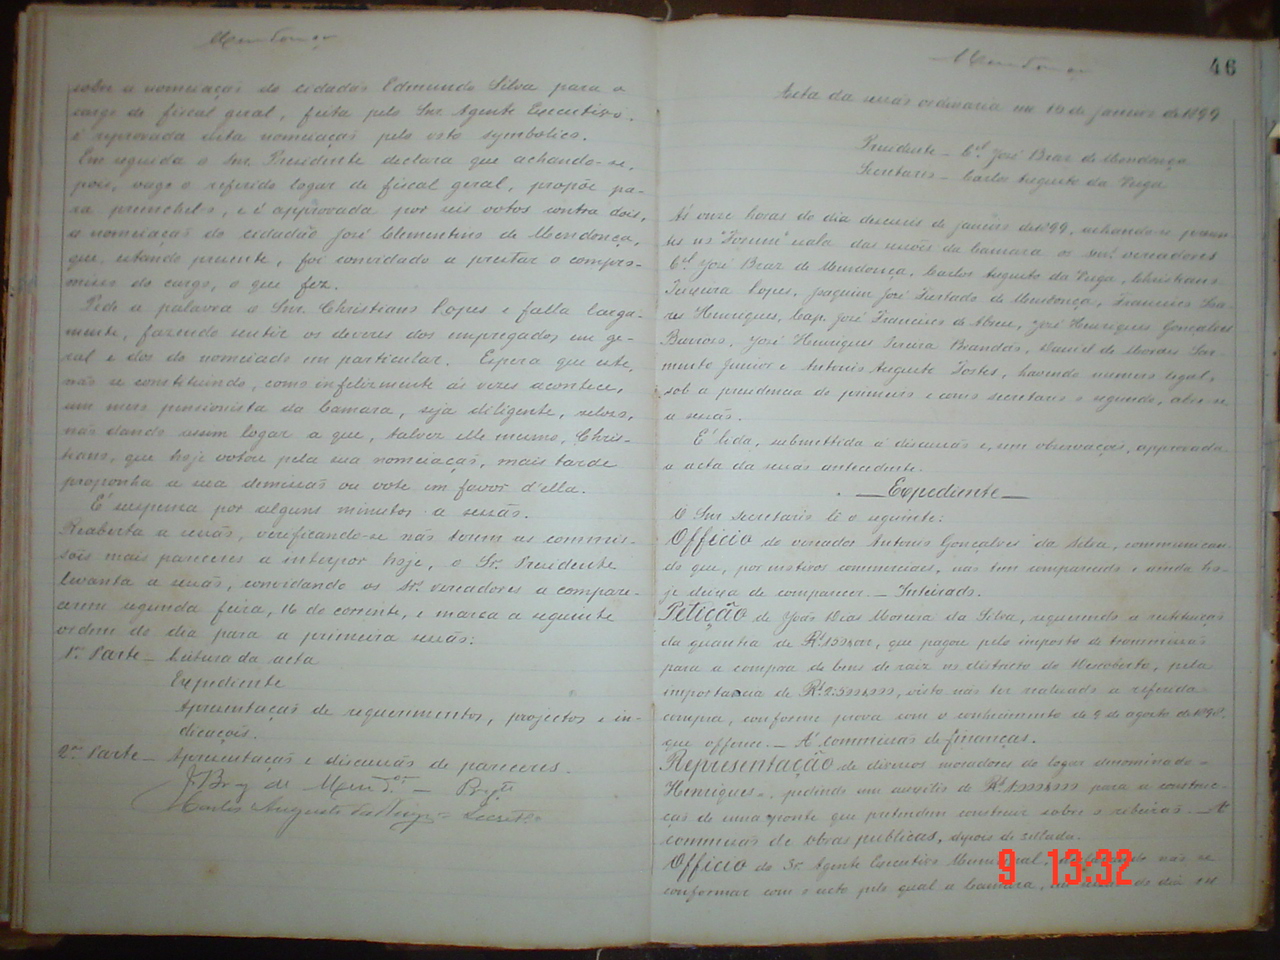 Mendonça
sobre a nomeiação do cidadão Edmundo Silva para o
cargo de fiscal geral, feita pelo Snr. Agente Executivo.
É reprovada esta nomeiação pelo voto symbolico.
Em seguida o Snr. Presidente declara que achando-se,
pois, vago o referido logar de fiscal geral, propõe pa-
ra prehenchel-o, e é approvada por seis votos contra dois,
a nomeiação do cidadão José Clementino de Mendonça,
que, estando presente, foi convidado a prestar o compro-
misso do cargo, o que fez.
Pede a palavra o Snr. Christiano Lopes e falla larga-
mente, fazendo sentir os deveres dos empregados em ge-
ral e dos do nomeiado em particular. Espera que este,
não se constituindo, como infelizmente ás vezes acontece,
um mero pensionista da Camara, seja diligente, zeloso,
não dando assim logar a que, talvez elle mesmo, Chris-
tiano, que hoje votou pela sua nomeiação, mais tarde
proponha a sua demissão ou vote em favor d'ella.
É suspensa por alguns minutos a sessão.
Reaberta a sessão, verificando-se não terem as commis-
sões mais pareceres a interpor hoje, o Sr. Presidente
levanta a sessão, convidando os Srs. vereadores a compare-
cerem segunda feira, 16 do corrente, e marca a seguinte
ordem do dia para a primeira sessão:
1ª Parte – Leitura da acta
Expediente
Apresentação de requerimentos, projectos e in-
dicações.
2ª Parte – Apresentação e discussão de pareceres.
J. Braz de Mend.ça –
Carlos Augusto da Veiga – Secret.o
Mendonça
46
Acta da sessão ordinaria em 16 de janeiro de 1899
Presidente – Cel. José Braz de Mendonça
Secretario – Carlos Augusto da Veiga
Ás onze horas do dia deseseis de janeiro de 1899, achando-se presen-
tes no "Forum" sala das sessões da Camara os snrs. vereadores
Cel. José Braz de Mendonça, Carlos Augusto da Veiga, Christiano
Teixeira Lopes, Joaquim José Furtado de Mendonça, Francisco Soa-
res Henriques, Cap. José Francisco de Abreu, José Henriques Gonçalves
Barroso, José Henriques Pereira Brandão, Daniel de Moraes Sar-
mento Junior e Antonio Augusto Tostes, havendo numero legal,
sob a presidencia do primeiro e como secretario o segundo, abre-se
a sessão.
É lida, submettida á discussão e, sem observação, approvada
a acta da sessão antecedente.
– Expediente –
O Snr. secretario lê o seguinte:
Officio do vereador Antonio Gonçalves da Silva, communican-
do que, por motivos commerciaes, não tem comparecido e ainda ho-
je deixa de comparecer. – Inteirado.
Petição de João Dias Moreira da Silva, requerendo a restituição
da quantia de que pagou pelo imposto de transmissão
para a compra de bens de raiz no districto do Descoberto, pela
importancia de Rs. 2:500$000, visto não ter realizado a referida
compra, conforme prova com o conhecimento de 9 de agosto de 1898,
que offerece. – Á commissão de finanças.
Representação de diversos moradores do logar denominado –
Henriques –, pedindo um auxilio de para a construc-
ção de uma ponte que pretendem construir sobre o ribeirão. – Á
commissão de obras publicas, depois de sellada.
Officio do Sr. Agente Executivo Municipal, não se
conformar com o acto pelo qual a Camara,
9 13:32